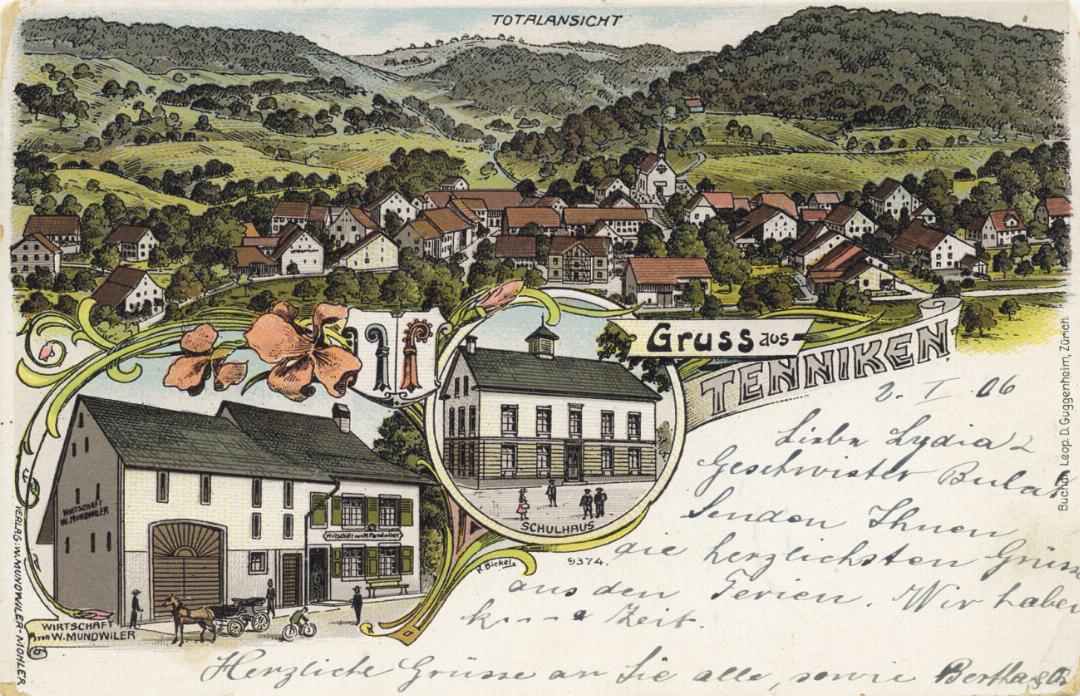 TOTALANSICHT
Gruss aus
TENNIKEN
2. I 06
Liebe Lydia &
Geschwister
Senden Ihnen
die herzlichsten Grüsse
aus den Ferien. Wir haben
Zeit.
Herzliche Grüsse an Sie alle, sowie Bertha &
WIRTSCHAFT
W. MUNDWILER
Wirtschaft von W. Mundwiler
SCHULHAUS
R. Bickel
9374.
WIRTSCHAFT
von W. MUNDWILER
VERLAG: W. MUNDWILER-MOHLER
Buchdr. Leop. D. Guggenheim, Zürich.